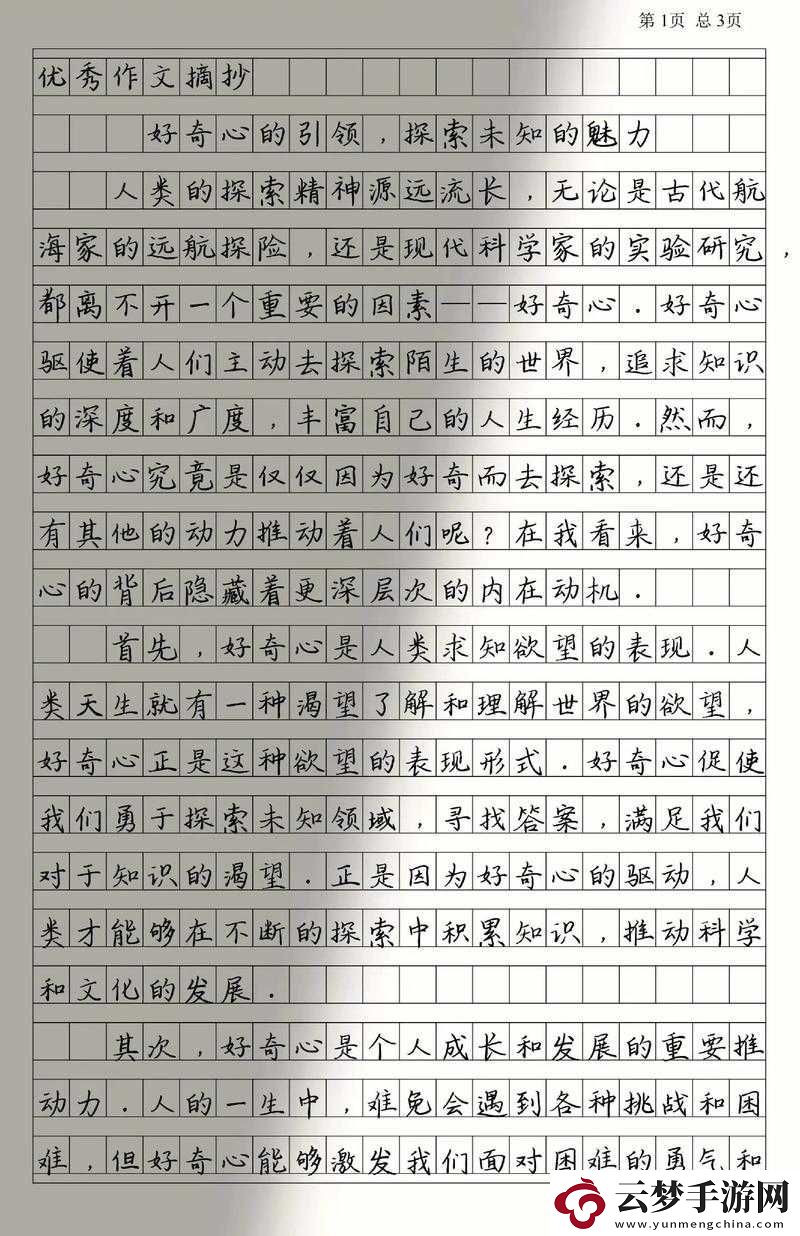 第1页 总3页
优秀作文摘抄
好奇心的引领，探索未知的魅力
人类的探索精神源远流长，无论是古代航
海家的远航探险，还是现代科学家的实验研究，
都离不开一个重要的因素——好奇心．好奇心
驱使着人们主动去探索陌生的世界，追求知识
的深度和广度，丰富自己的人生经历．然而，
好奇心究竟是仅仅因为好奇而去探索，还是还
有其他的动力推动着人们呢？在我看来，好奇
心的背后隐藏着更深层次的内在动机．
首先，好奇心是人类求知欲望的表现．人
类天生就有一种渴望了解和理解世界的欲望，
好奇心正是这种欲望的表现形式．好奇心促使
我们勇于探索未知领域，寻找答案，满足我们
对于知识的渴望．正是因为好奇心的驱动，人
类才能够在不断的探索中积累知识，推动科学
和文化的发展．
其次，好奇心是个人成长和发展的重要推
动力．人的一生中，难免会遇到各种挑战和困
难，但好奇心能够激发我们面对困难的勇气和
云梦手游网
www.yunmengchina.com